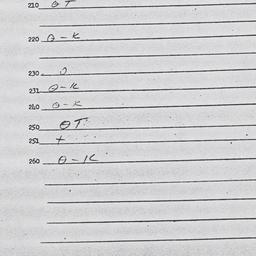 210 θ T
220 θ - K
230 0
231 θ - K
240 θ - K
250 θ T
251 +
260 θ - K